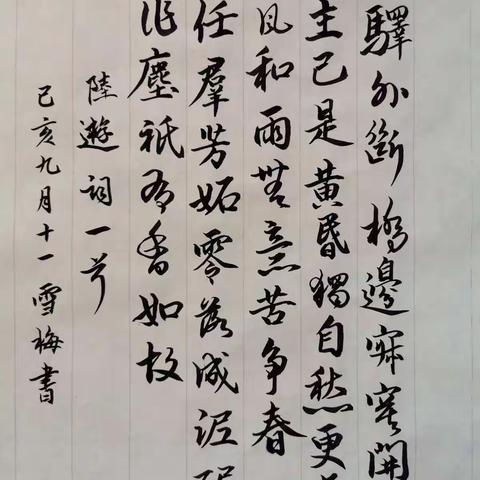 驛外斷橋邊寂寞開
主已是黃昏獨自愁更
風和雨無意苦爭春
任羣芳妬零落成泥
作塵祇有香如故
陸遊詞一首
己亥九月十一雪梅書